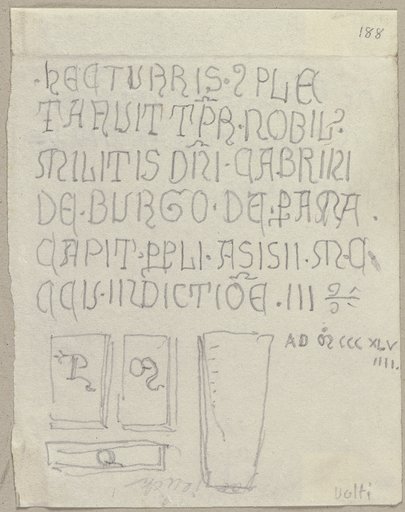 188
·HEC TURRIS·9PLE
TA FUIT TP̃R·NOBIL9·
MILITIS DÑI·GABRINI
DE·BURGO·DE·PAMA.
CAPIT·PPLI·ASISII·M·C
CCV·INDICTIÕE·III
P
M
AD M̊ CCC XLV
IIII.
volti